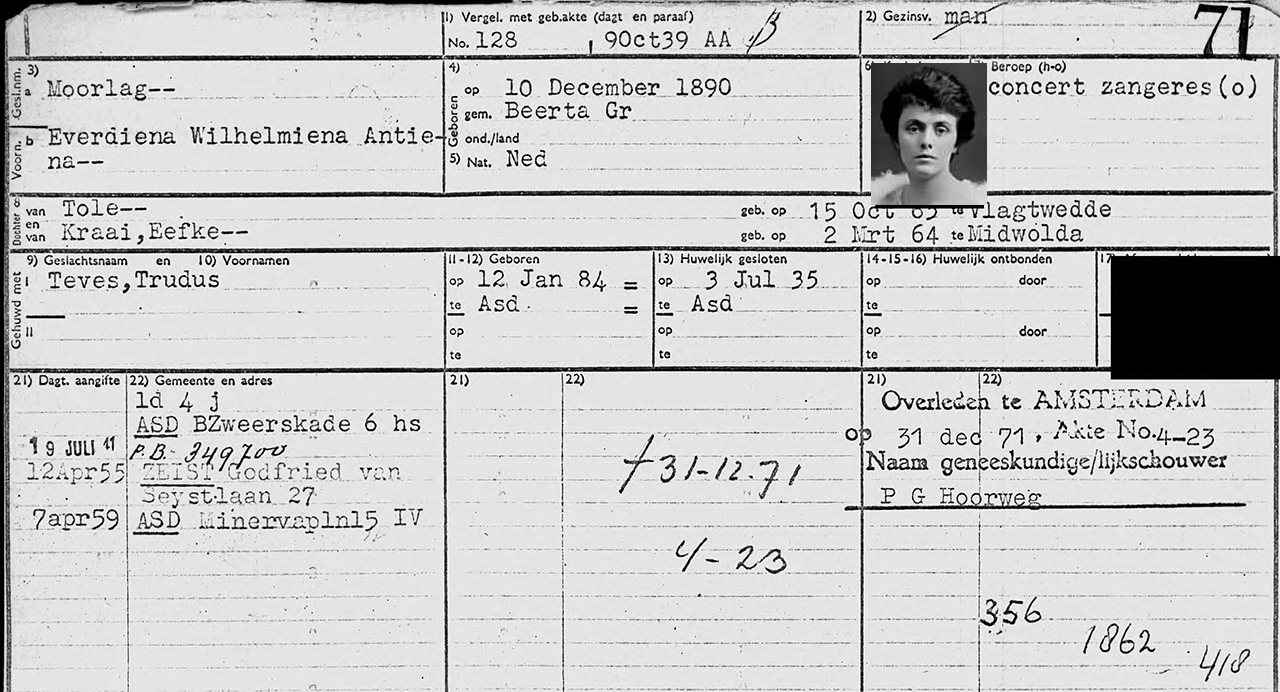 1) Vergel. met geb.akte (dagt en paraaf)
No. 128 , 9Oct39 AA
2) Gezinsv. man
71
Gesl.nm. 3) a Moorlag--
Voorn. b Everdiena Wilhelmiena Antie-
na--
Geboren 4) op 10 December 1890
gem. Beerta Gr
ond./land
5) Nat. Ned
6
Beroep (h-o)
concert zangeres(o)
Dochter van Tole-- geb. op 15 Oct te Vlagtwedde
en van Kraai,Eefke-- geb. op 2 Mrt 64 te Midwolda
Gehuwd met
9) Geslachtsnaam en 10) Voornamen
I Teves,Trudus
II
11-12) Geboren
op 12 Jan 84 =
te Asd =
op
te
13) Huwelijk gesloten
op 3 Jul 35
te Asd
op
te
14-15-16) Huwelijk ontbonden
op door
te
op door
te
17
21) Dagt. aangifte 22) Gemeente en adres
ld 4 j
ASD BZweerskade 6 hs
19 JULI 41 P.B. 349700
12Apr55 ZEIST Godfried van
Seystlaan 27
7apr59 ASD Minervapln15 IV
21) 22)
† 31-12-71
4-23
21) 22)
Overleden te AMSTERDAM
op 31 dec 71, Akte No.4-23
Naam geneeskundige/lijkschouwer
P G Hoorweg
356
1862
418